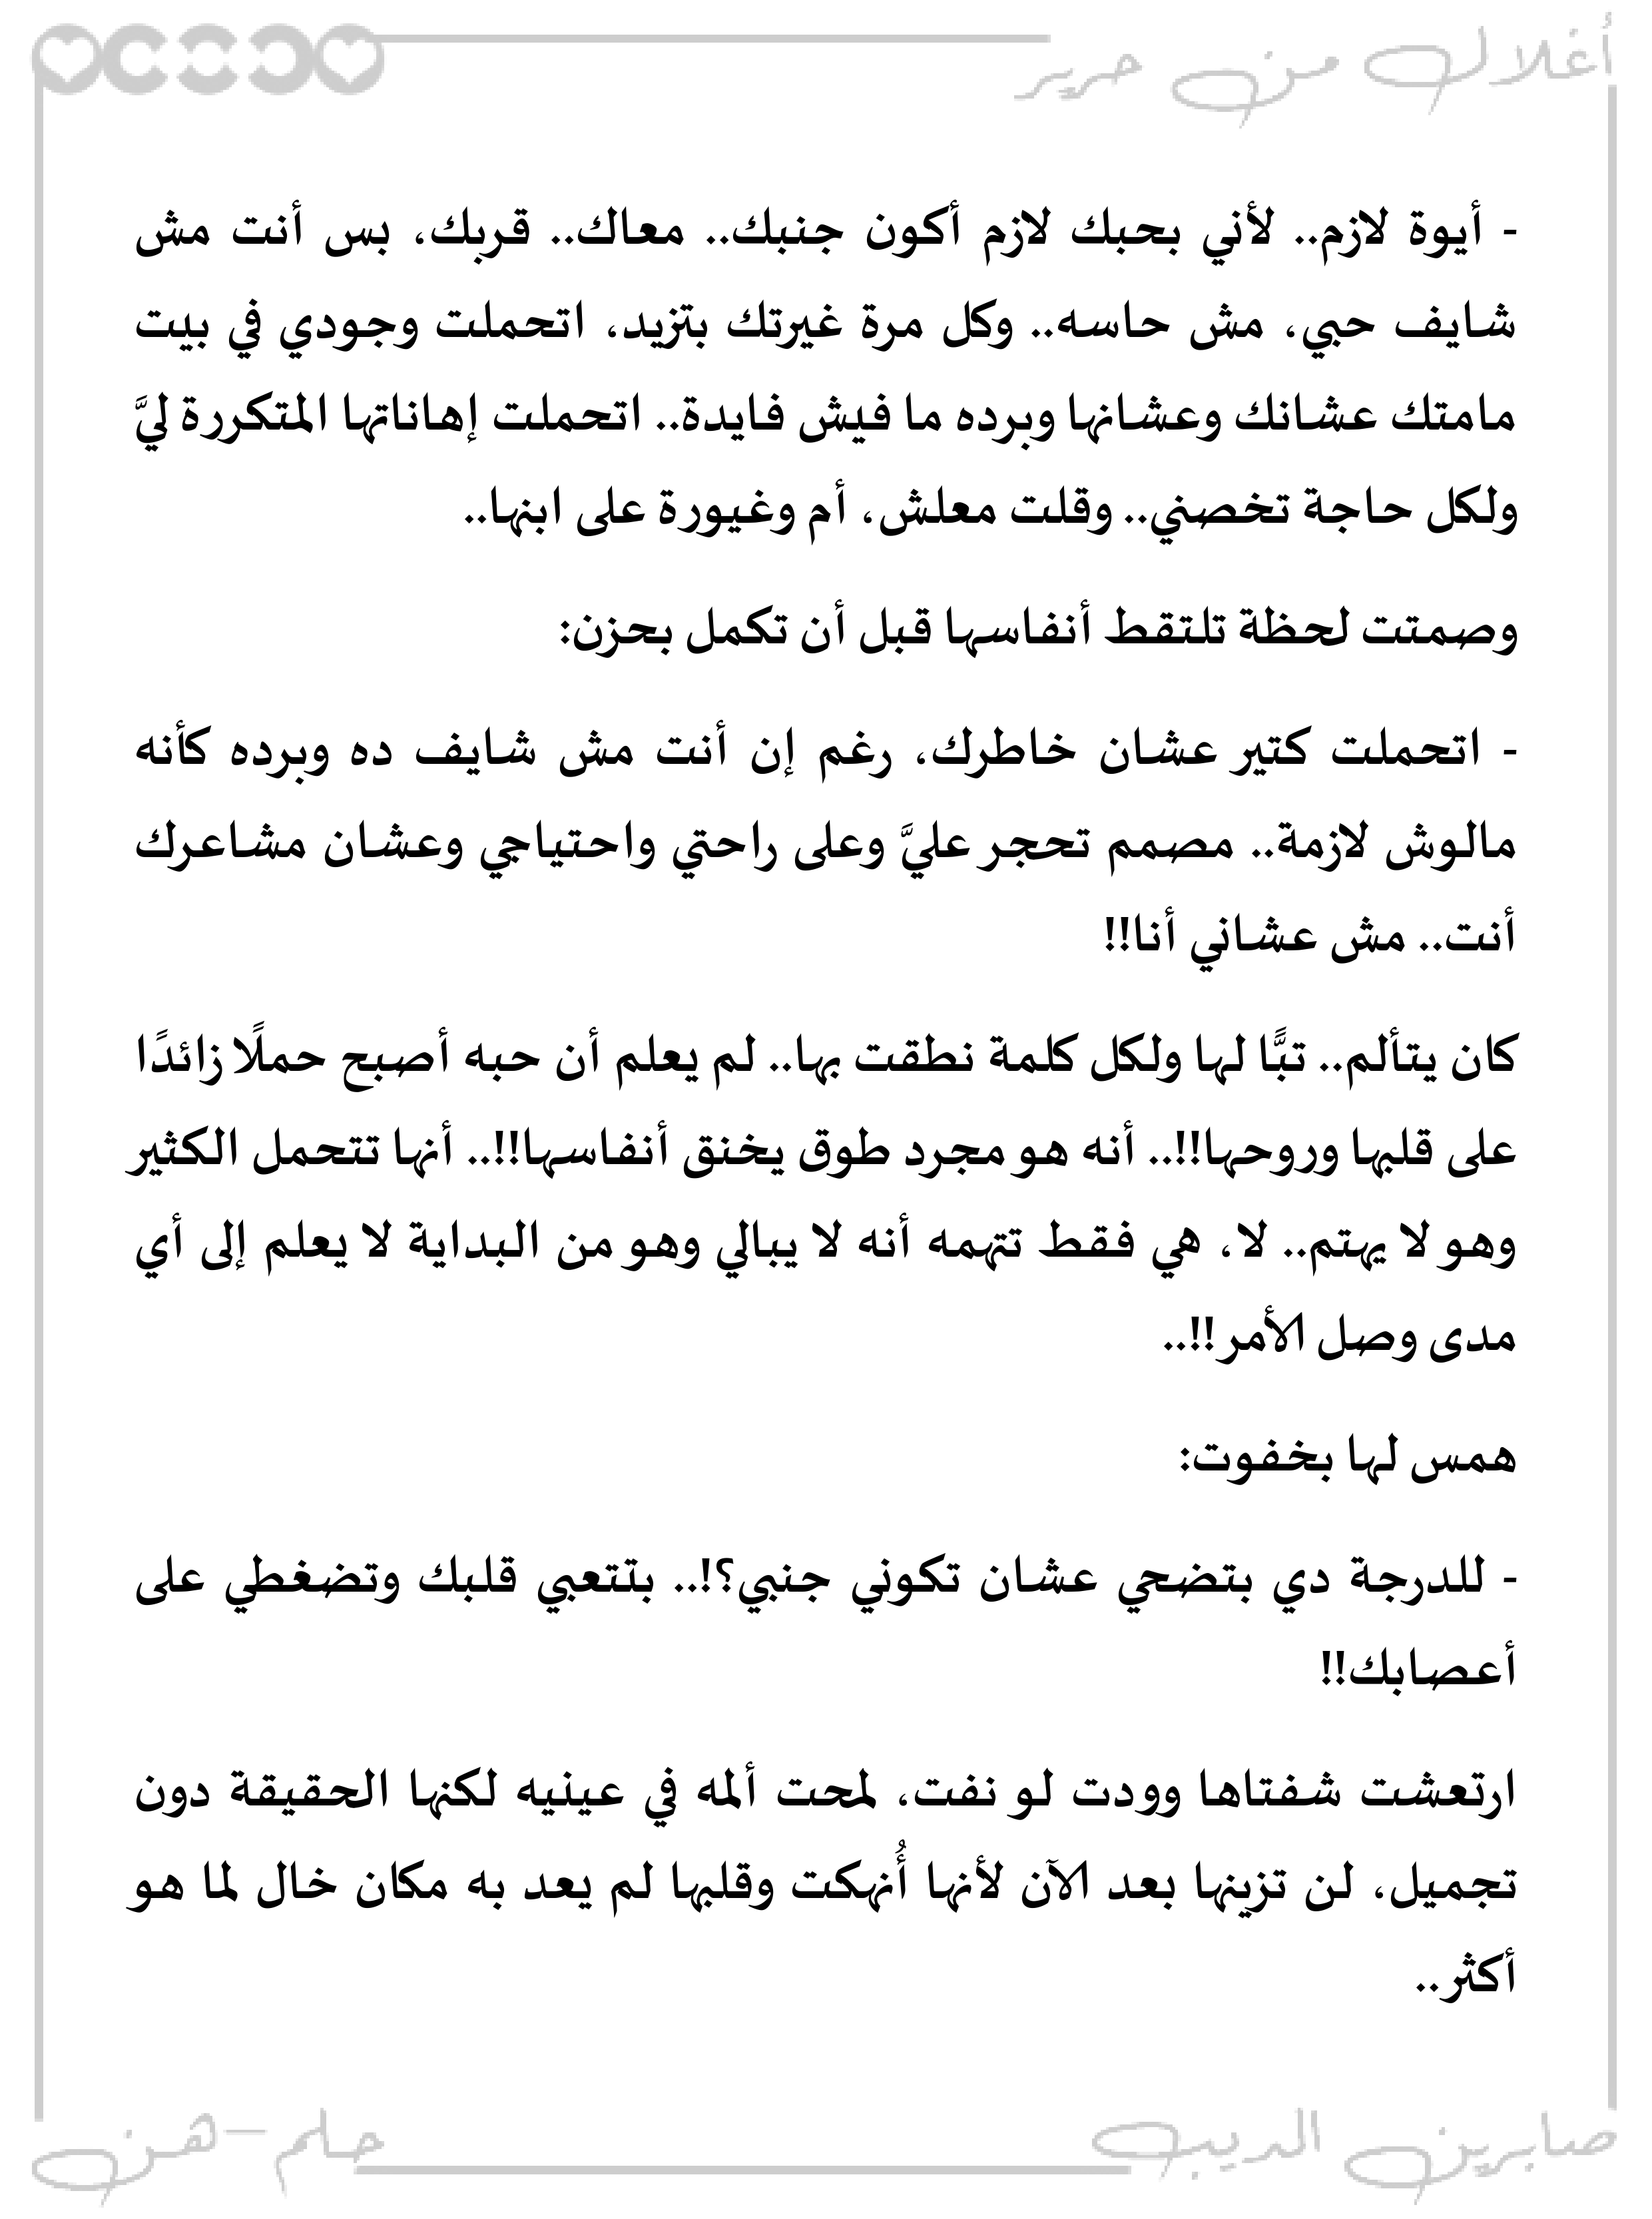 أغلال من حرير
- أيوة لازم.. لأني بحبك لازم أكون جنبك.. معاك.. قربك، بس أنت مش
شايف حبي، مش حاسه.. وكل مرة غيرتك بتزيد، اتحملت وجودي في بيت
مامتك عشانك وعشانها وبرده ما فيش فايدة.. اتحملت إهاناتها المتكررة ليَّ
ولكل حاجة تخصني.. وقلت معلش، أم وغيورة على ابنها..
وصمتت لحظة تلتقط أنفاسها قبل أن تكمل بحزن:
- اتحملت كتير عشان خاطرك، رغم إن أنت مش شايف ده وبرده كأنه
مالوش لازمة.. مصمم تحجر عليَّ وعلى راحتي واحتياجي وعشان مشاعرك
أنت.. مش عشاني أنا!!
كان يتألم.. تبًّا لها ولكل كلمة نطقت بها.. لم يعلم أن حبه أصبح حملًا زائدًا
على قلبها وروحها!!.. أنه هو مجرد طوق يخنق أنفاسها!!.. أنها تتحمل الكثير
وهو لا يهتم.. لا، هي فقط تتهمه أنه لا يبالي وهو من البداية لا يعلم إلى أي
مدى وصل الأمر!!..
همس لها بخفوت:
- للدرجة دي بتضحي عشان تكوني جنبي؟!.. بتتعبي قلبك وتضغطي على
أعصابك!!
ارتعشت شفتاها وودت لو نفت، لمحت ألمه في عينيه لكنها الحقيقة دون
تجميل، لن تزينها بعد الآن لأنها أُنهكت وقلبها لم يعد به مكان خال لما هو
أكثر..
صابرين الديب
حلم-هن